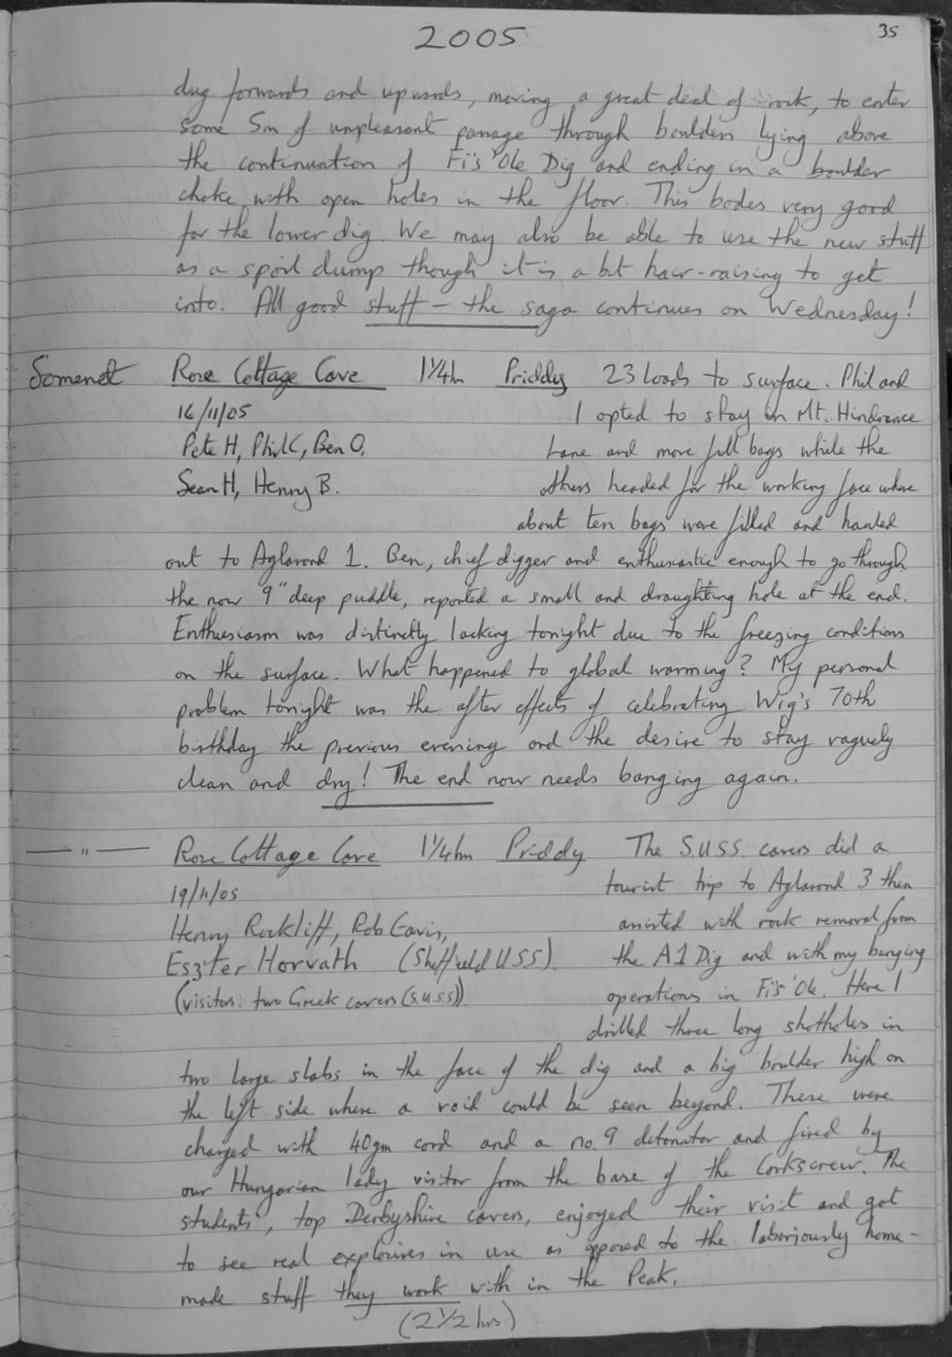 2005
35
dug forwards and upwards, moving a great deal of rock, to enter
some 5m of unpleasant passage through boulders lying above
the continuation of Fi's 'Ole Dig and ending in a boulder
choke with open holes in the floor. This bodes very good
for the lower dig. We may also be able to use the new stuff
as a spoil dump though it is a bit hair-raising to get
into. All good stuff – the saga continues on Wednesday!
Somerset Rose Cottage Cave 1¼hr Priddy 23 loads to surface. Phil and
16/11/05 I opted to stay in Mt. Hindrance
Pete H, Phil C, Ben O, Lane and move full bags while the
Sean H, Henry B. others headed for the working face where
about ten bags were filled and hauled
out to Aglarond 1. Ben, chief digger and enthusiastic enough to go through
the now 9" deep puddle, reported a small and draughting hole at the end.
Enthusiasm was distinctly lacking tonight due to the freezing conditions
on the surface. What happened to global warming? My personal
problem tonight was the after effects of celebrating Wig's 70th
birthday the previous evening and the desire to stay vaguely
clean and dry! The end now needs banging again.
— " — Rose Cottage Cave 1¼hr Priddy The S.U.S.S. cavers did a
19/11/05 tourist trip to Aglarond 3 then
Henry Rockliff, Rob Eavis, assisted with rock removal from
Eszter Horvath (Sheffield USS) the A1 Dig and with my banging
(visitors: two Greek cavers (S.U.S.S)) operations in Fi's 'Ole. Here I
drilled three long shotholes in
two large slabs in the face of the dig and a big boulder high on
the left side where a void could be seen beyond. These were
charged with 40gm cord and a no. 9 detonator and fired by
our Hungarian lady visitor from the base of the Corkscrew. The
students, top Derbyshire cavers, enjoyed their visit and got
to see real explosives in use as opposed to the laboriously home-
made stuff they work with in the Peak.
(2½hrs)